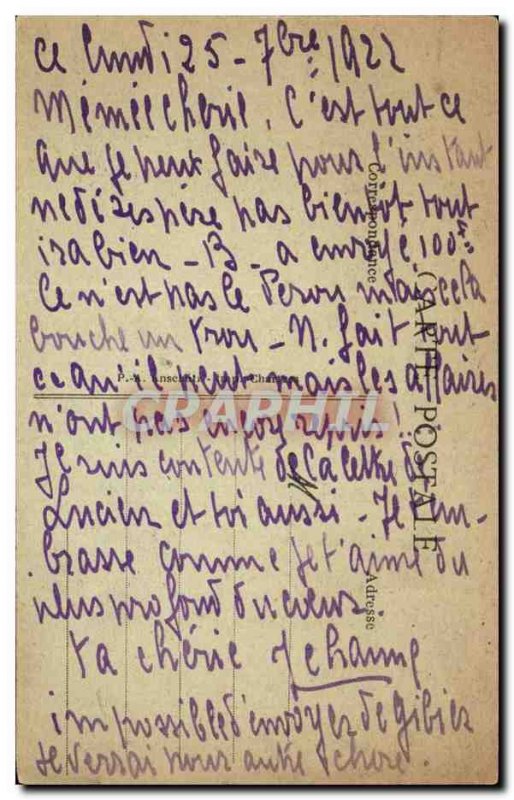 ce lundi 25 - 7bre 1922
Mémée chérie, c'est tout ce
que je peux faire pour l'instant
ne désespère pas bientôt tout
ira bien - B - a envoyé 100f
Ce n'est pas le Pérou mais cela
bouche un trou - N. fait tout
ce qu'il peut mais les affaires
n'ont pas encor repris!
Je suis contente de la lettre de
Lucien et toi aussi - Je t'em-
brasse comme je t'aime du
plus profond du coeur.
ta chérie Jehanne
impossible d'envoyer de gibier
je verrai pour autre chose.
CARTE POSTALE
Correspondance
Adresse
CPAPHIL